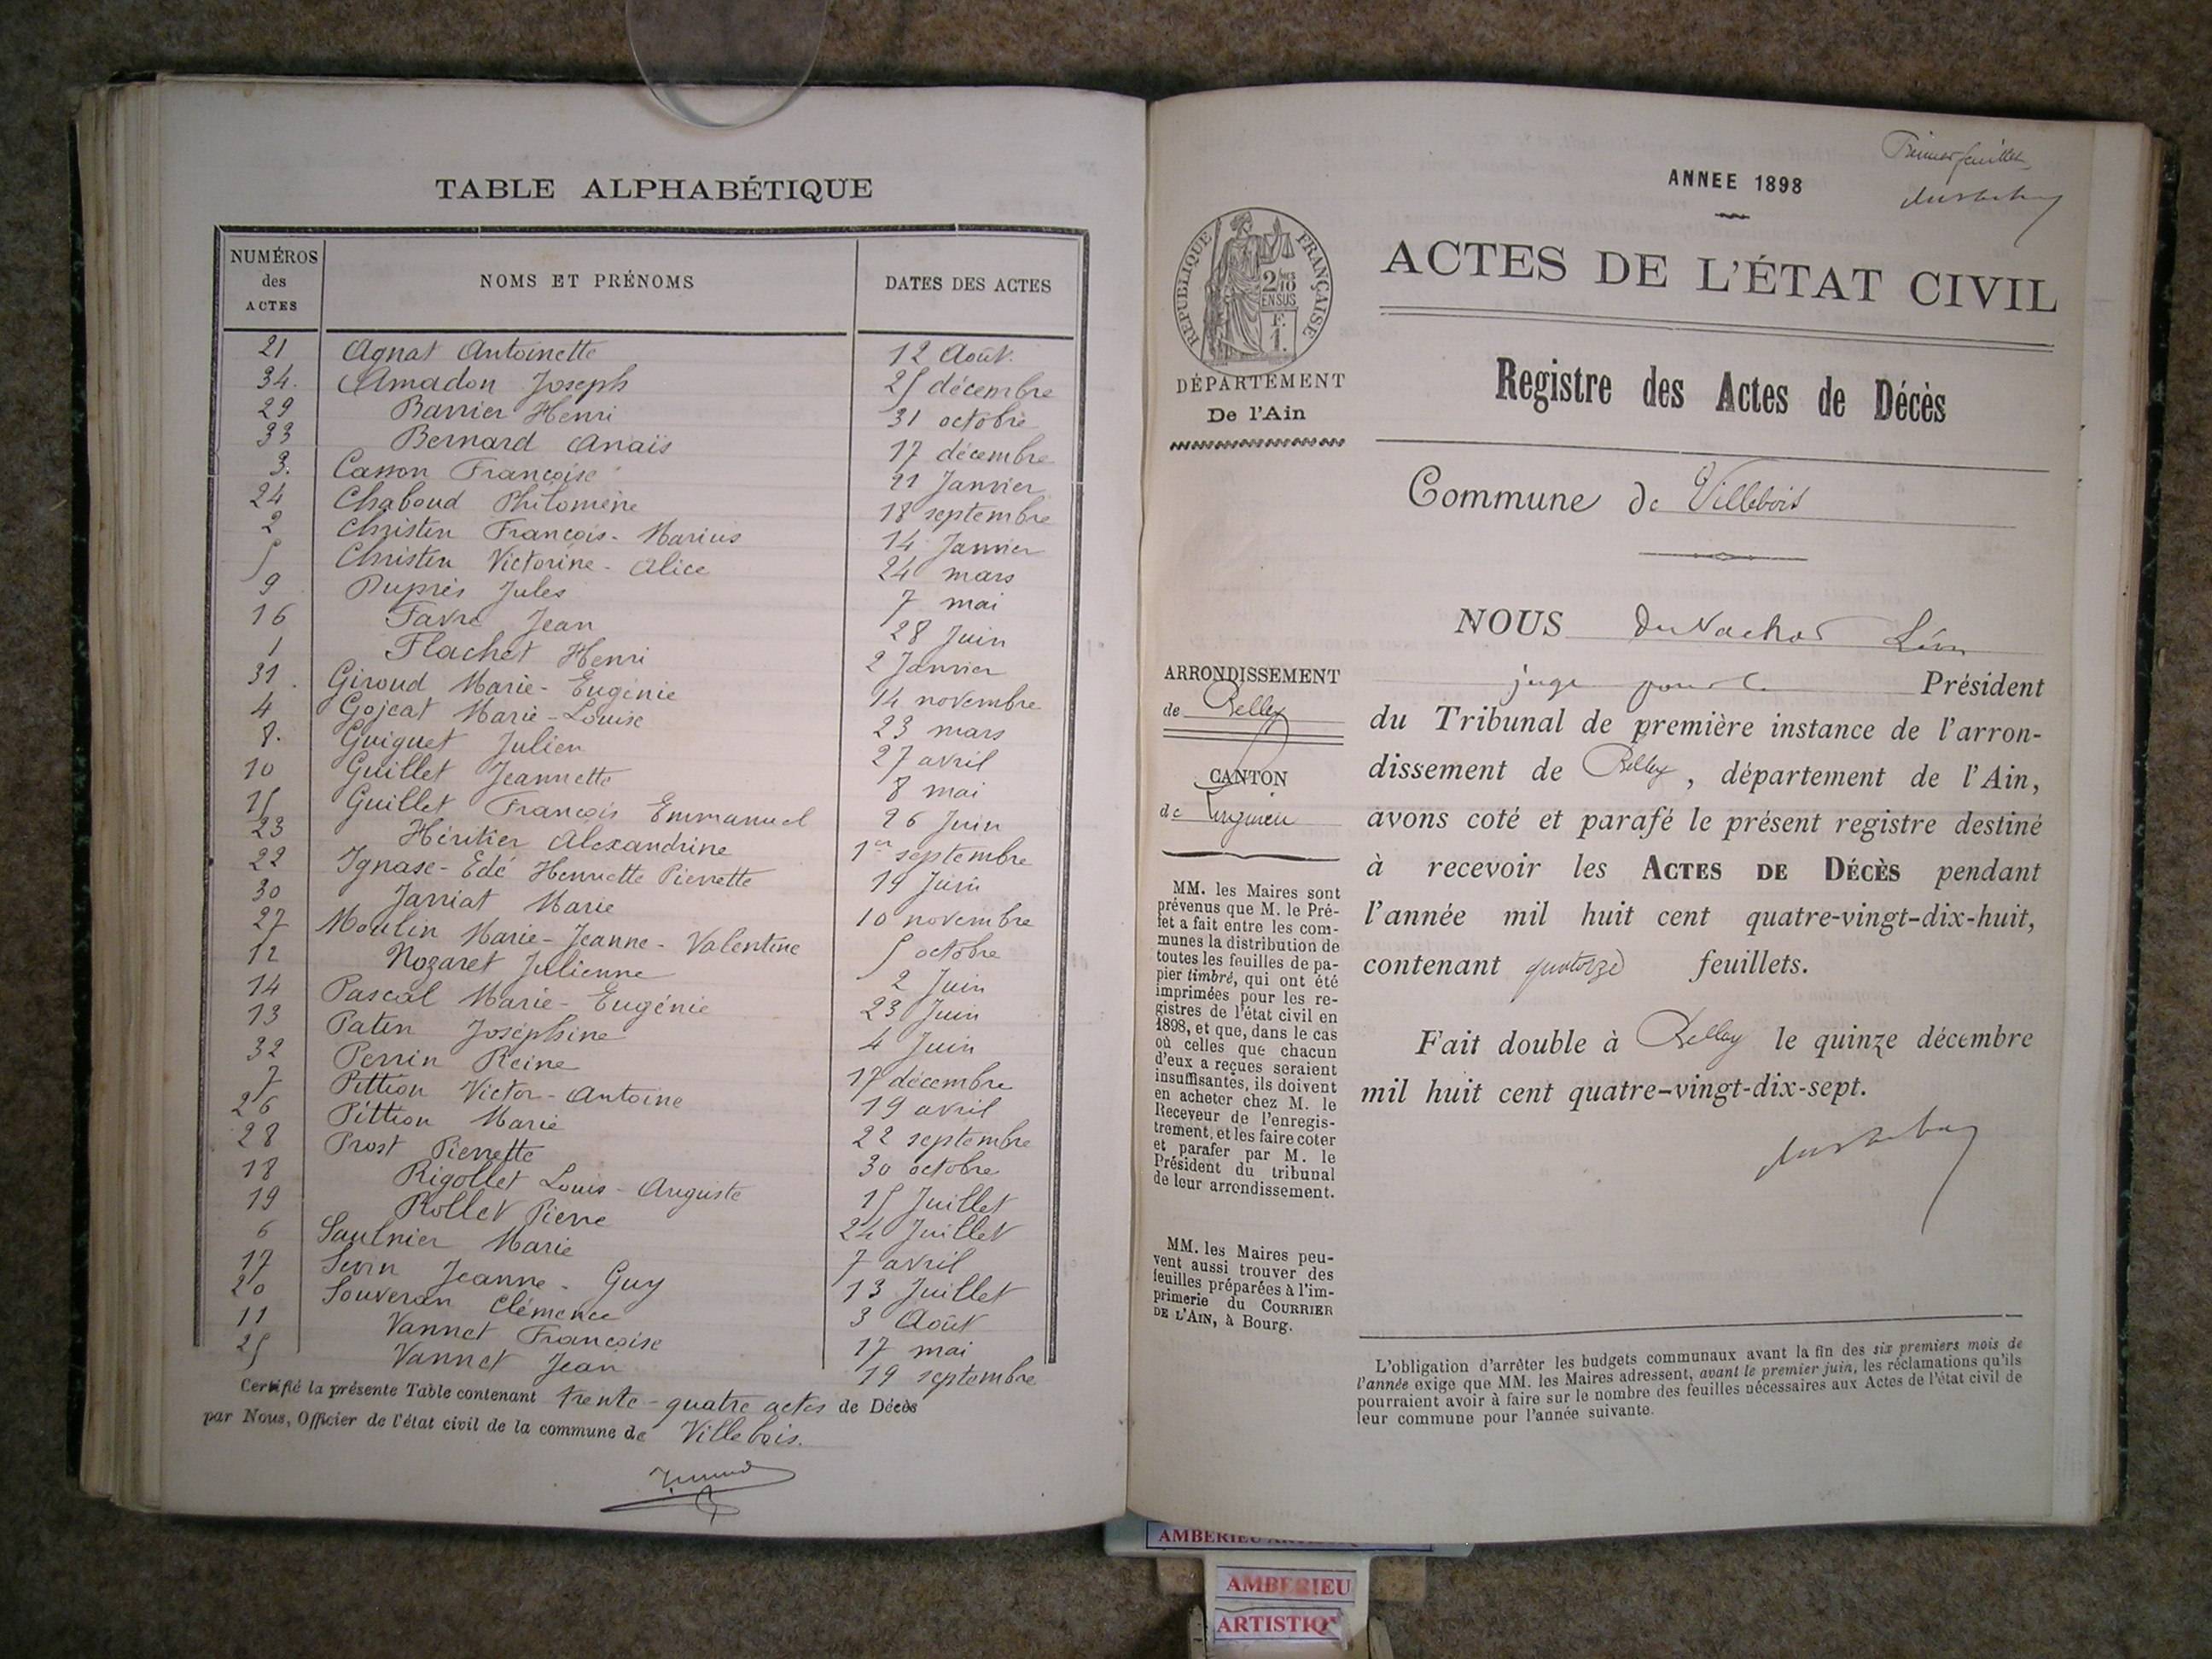 TABLE ALPHABÉTIQUE
NUMÉROS des ACTES NOMS ET PRÉNOMS DATES DES ACTES
21 Agnat Antoinette 12 Août.
34. Amadon Joseph 25 décembre
29 Barrier Henri 31 octobre
33 Bernard Anaïs 17 décembre
3. Casson Françoise 21 Janvier
24 Chaboud Philomène 18 septembre
2 Christin François-Marius 14 Janvier
5 Christin Victorine-Alice 24 mars
9 Duprés Jules 7 mai
16 Favre Jean 28 Juin
1 Flachet Henri 2 Janvier
31. Giroud Marie-Eugénie 14 novembre
4 Gojeat Marie-Louise 23 mars
8. Guiguet Julien 27 avril
10 Guillet Jeannette 8 mai
15 Guillet François Emmanuel 26 Juin
23 Héritier Alexandrine 1er septembre
22 Ignase-Edé Henriette Pierrette 19 Juin
30 Jarriat Marie 10 novembre
27 Moulin Marie-Jeanne-Valentine 5 octobre
12 Nozaret Julienne 2 Juin
14 Pascal Marie-Eugénie 23 Juin
13 Patin Joséphine 4 Juin
32 Perrin Reine 17 décembre
7 Pittion Victor-Antoine 19 avril
26 Pittion Marie 22 septembre
28 Prost Pierrette 30 octobre
18 Rigollet Louis-Auguste 15 Juillet
19 Rollet Pierre 24 Juillet
6 Saulnier Marie 7 avril
17 Sevin Jeanne-Guy 13 Juillet
20 Souveran Clémence 3 Août
11 Vannet Françoise 17 mai
25 Vannet Jean 19 septembre
Certifié la présente Table contenant trente-quatre actes de Décès
par Nous, Officier de l'état civil de la commune de Villebois.
Premier feuillet
ANNEE 1898
RÉPUBLIQUE FRANÇAISE
2/10 EN SUS
F. 1.
DÉPARTEMENT
De l'Ain
ACTES DE L'ÉTAT CIVIL
Registre des Actes de Décès
Commune de Villebois
NOUS Léon
juge pour le Président
du Tribunal de première instance de l'arron-
dissement de Belley, département de l'Ain,
avons coté et parafé le présent registre destiné
à recevoir les ACTES DE DÉCÈS pendant
l'année mil huit cent quatre-vingt-dix-huit,
contenant quatorze feuillets.
Fait double à Belley le quinze décembre
mil huit cent quatre-vingt-dix-sept.
ARRONDISSEMENT
de Belley
CANTON
de Lagnieu
MM. les Maires sont
prévenus que M. le Pré-
fet a fait entre les com-
munes la distribution de
toutes les feuilles de pa-
pier timbré, qui ont été
imprimées pour les re-
gistres de l'état civil en
1898, et que, dans le cas
où celles que chacun
d'eux a reçues seraient
insuffisantes, ils doivent
en acheter chez M. le
Receveur de l'enregis-
trement, et les faire coter
et parafer par M. le
Président du tribunal
de leur arrondissement.
MM. les Maires peu-
vent aussi trouver des
feuilles préparées à l'im-
primerie du COURRIER
DE L'AIN, à Bourg.
L'obligation d'arrêter les budgets communaux avant la fin des six premiers mois de
l'année exige que MM. les Maires adressent, avant le premier juin, les réclamations qu'ils
pourraient avoir à faire sur le nombre des feuilles nécessaires aux Actes de l'état civil de
leur commune pour l'année suivante.
AMBERIEU
AMBERIEU
ARTISTIQ